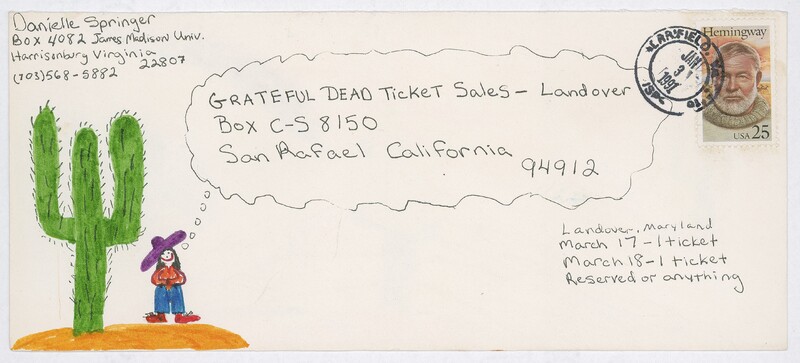 Danielle Springer
Box 4082 James Madison Univ.
Harrisonburg Virginia
22807
(703)568-5882
GRATEFUL DEAD Ticket Sales - Landover
Box C-S 8150
San Rafael California
94912
JAN
3
1991
Hemingway
USA 25
Landover, Maryland
March 17 - 1 ticket
March 18 - 1 ticket
Reserved or anything